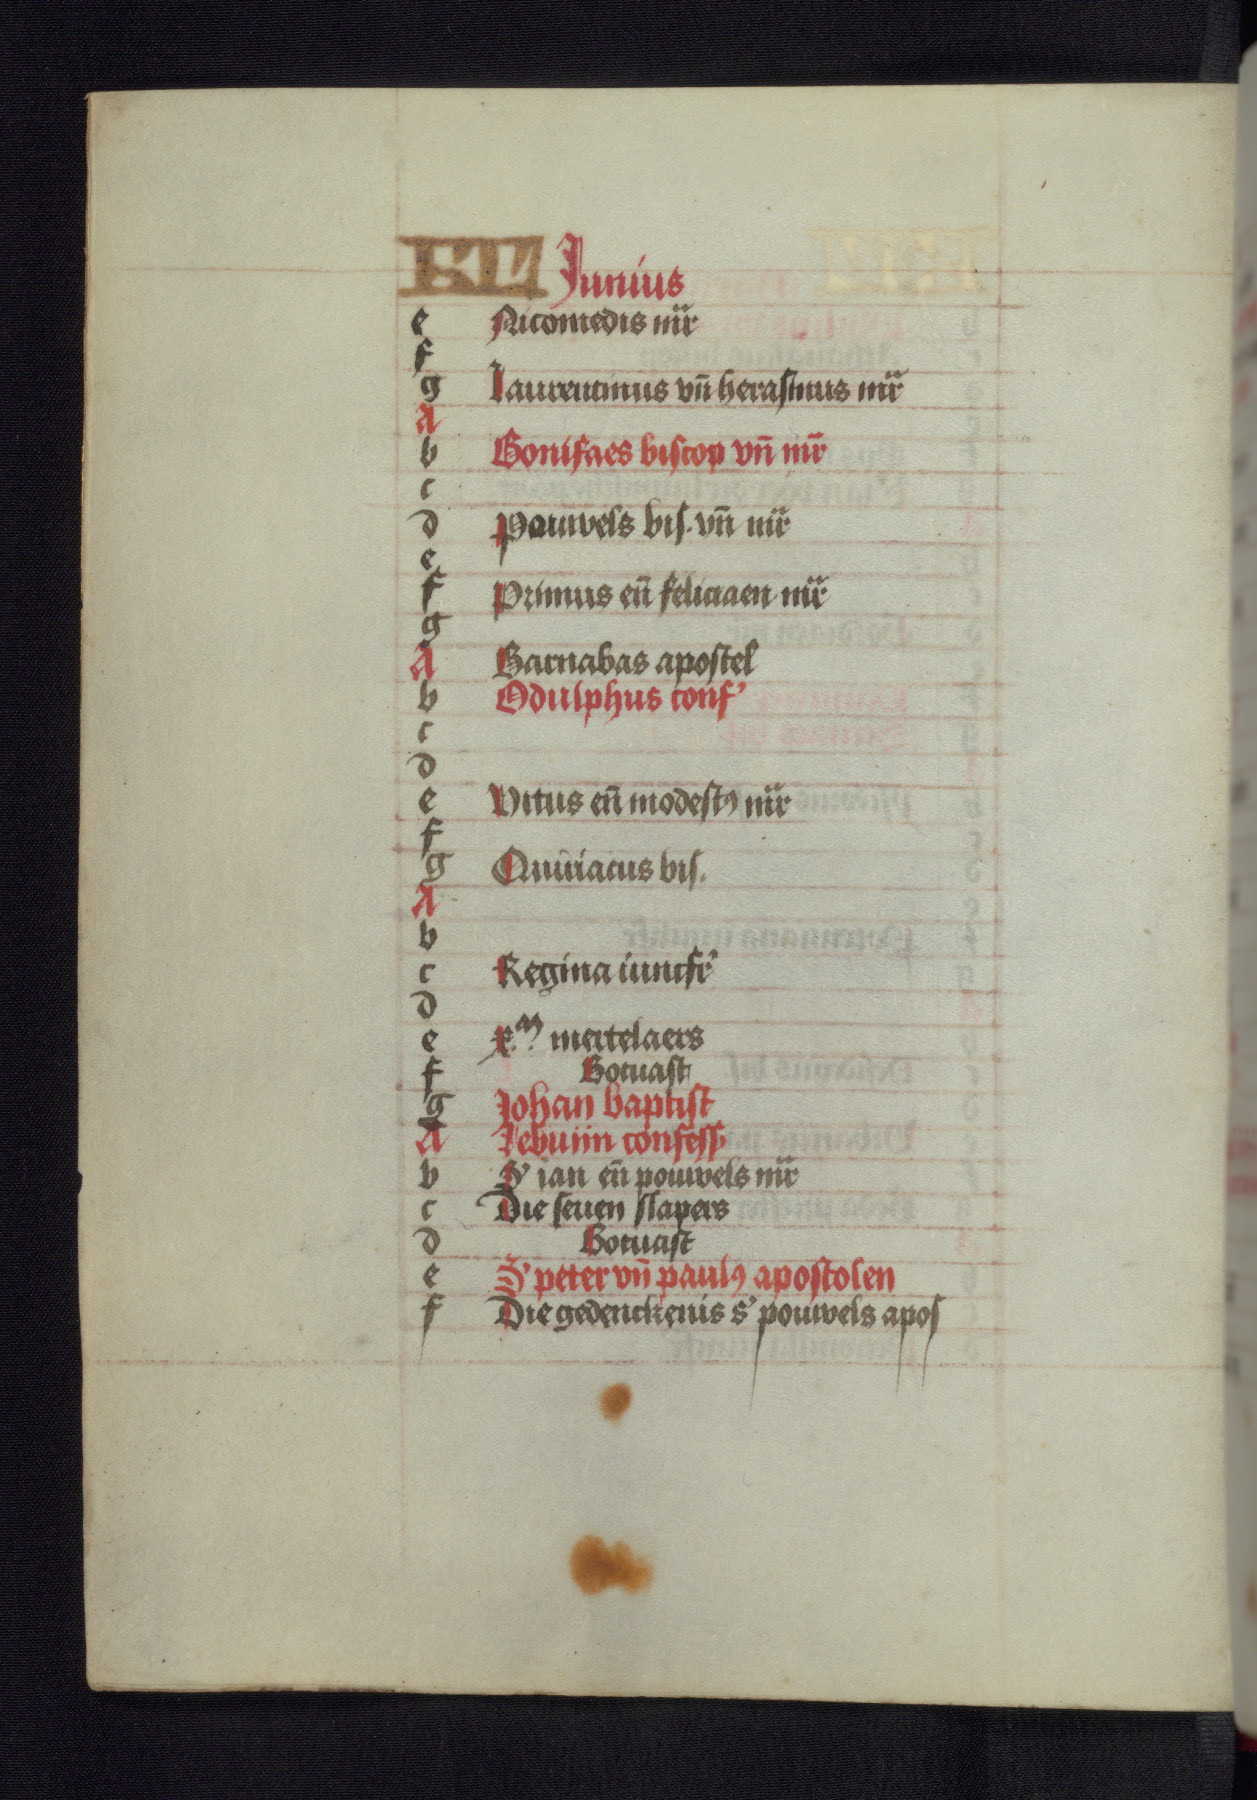 KL Junius
e Nicomedis mr̄
f
g Laurentinus vn̄ herasmus mr̄
A
b Bonifaes biscop vn̄ mr̄
c
d Pauwels bis. vn̄ mr̄
e
f Primus en̄ feliciaen mr̄
g
A Barnabas apostel
b Odulphus conf'
c
d
e Vitus en̄ modestꝰ mr̄
f
g bis.
A
b
c Regina iuncfr'
d
e x.ᵐ mertelaers
f Botuast
g Johan baptist
A Lebuiin confess'
b S' ian en̄ pouwels mr̄
c Die seuen slapers
d Botuast
e S' peter vn̄ paulꝰ apostolen
f Die gedenckenis s' pouwels apos